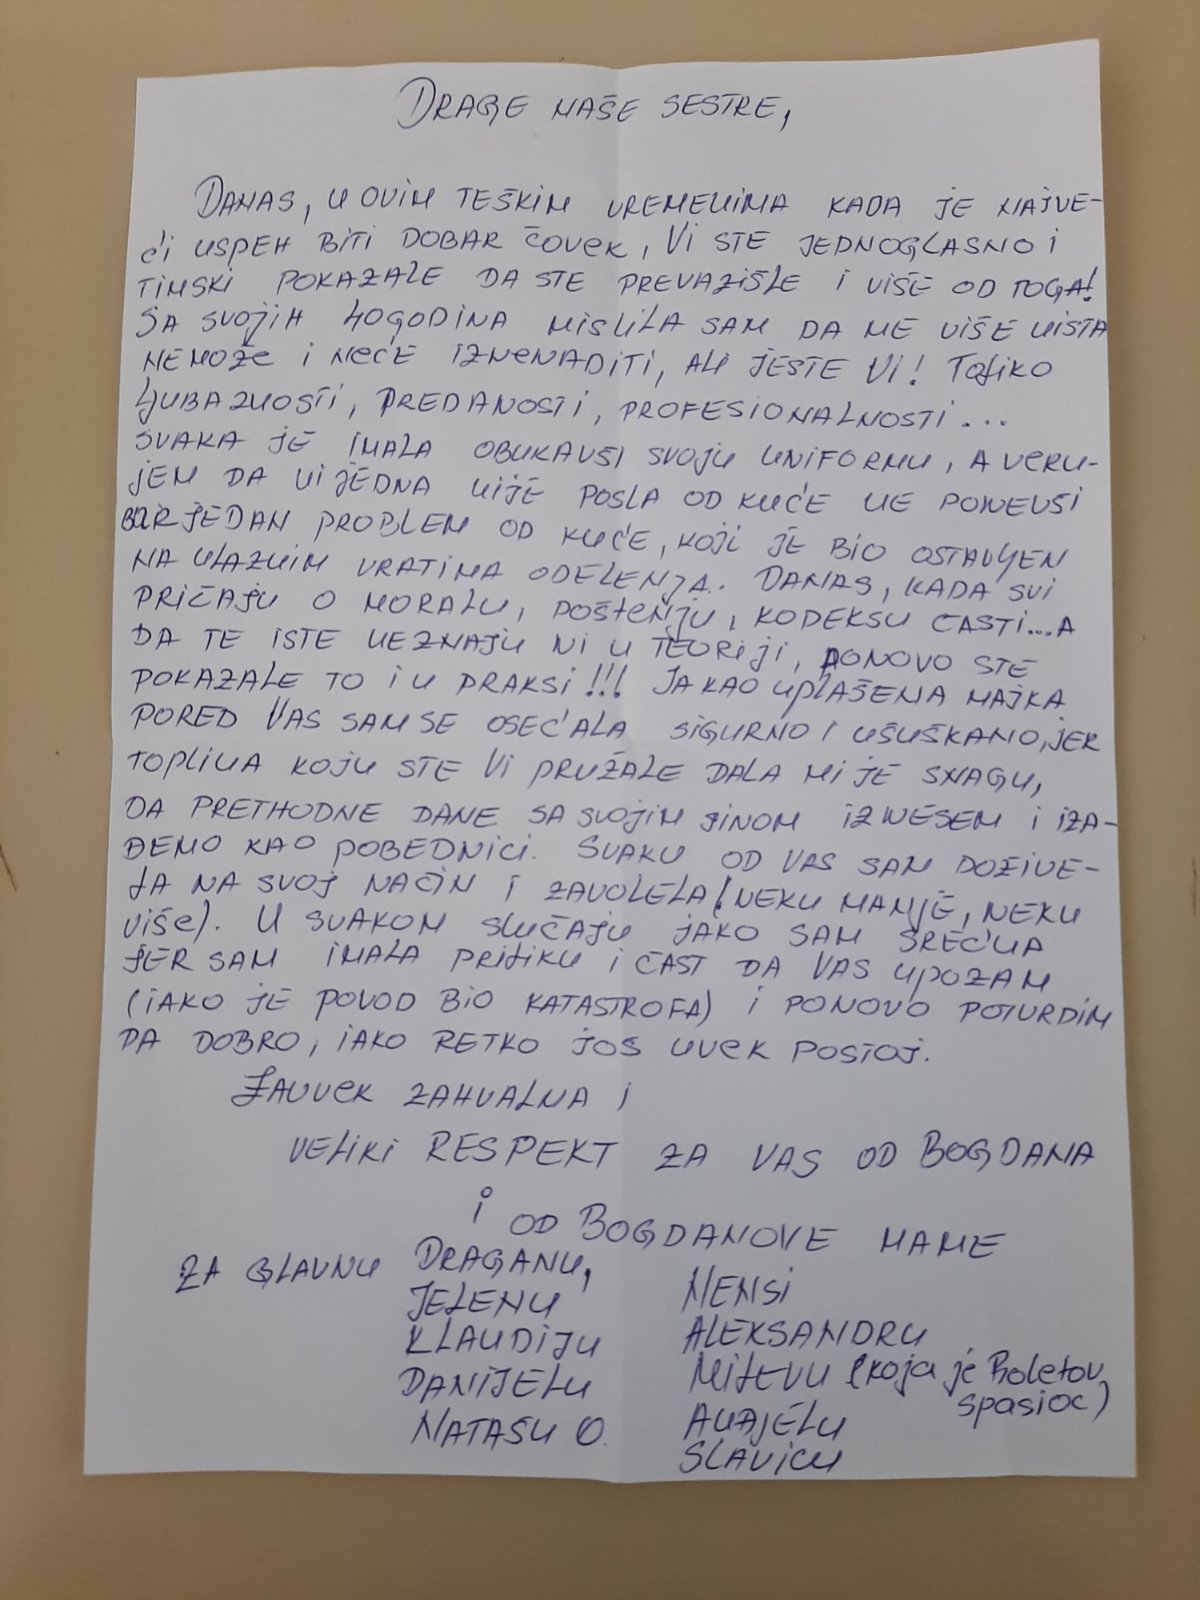 DRAGE NAŠE SESTRE,
DANAS, U OVIM TEŠKIM VREMENIMA KADA JE NAJVE-
ĆI USPEH BITI DOBAR ČOVEK, VI STE JEDNOGLASNO I
TIMSKI POKAZALE DA STE PREVAZIŠLE I VIŠE OD TOGA!
SA SVOJIH 40 GODINA MISLILA SAM DA ME VIŠE NIŠTA
NEMOŽE I NEĆE IZNENADITI, ALI JESTE VI! TOLIKO
LJUBAZNOSTI, PREDANOSTI, PROFESIONALNOSTI...
SVAKA JE IMALA OBUKAVŠI SVOJU UNIFORMU, A VERU-
JEM DA NIJEDNA NIJE POŠLA OD KUĆE NE PONEVŠI
BAR JEDAN PROBLEM OD KUĆE, KOJI JE BIO OSTAVLJEN
NA ULAZNIM VRATIMA ODELENJA. DANAS, KADA SVI
PRIČAJU O MORALU, POŠTENJU, KODEKSU ČASTI....A
DA TE ISTE NEZNAJU NI U TEORIJI, PONOVO STE
POKAZALE TO I U PRAKSI!!! JA KAO UPLAŠENA MAJKA
PORED VAS SAM SE OSEĆALA SIGURNO I UŠUŠKANO, JER
TOPLINA KOJU STE VI PRUŽALE DALA MI JE SNAGU,
DA PRETHODNE DANE SA SVOJIM SINOM IZNESEM I IZA-
ĐEMO KAO POBEDNICI. SVAKU OD VAS SAM DOŽIVE-
LA NA SVOJ NAČIN I ZAVOLELA (NEKU MANJE, NEKU
VIŠE). U SVAKOM SLUČAJU JAKO SAM SREĆNA
JER SAM IMALA PRILIKU I ČAST DA VAS UPOZAM
(IAKO JE POVOD BIO KATASTROFA) I PONOVO POTVRDIM
DA DOBRO, IAKO RETKO JOŠ UVEK POSTOJI.
ZAUVEK ZAHVALNA I
VELIKI RESPEKT ZA VAS OD BOGDANA
I OD BOGDANOVE MAME
ZA GLAVNU DRAGANU,
JELENU
KLAUDIJU
DANIJELU
NATAŠU O.
NENSI
ALEKSANDRU
MILEVU (koja je Roletov
spasioc)
ANĐELU
SLAVICU